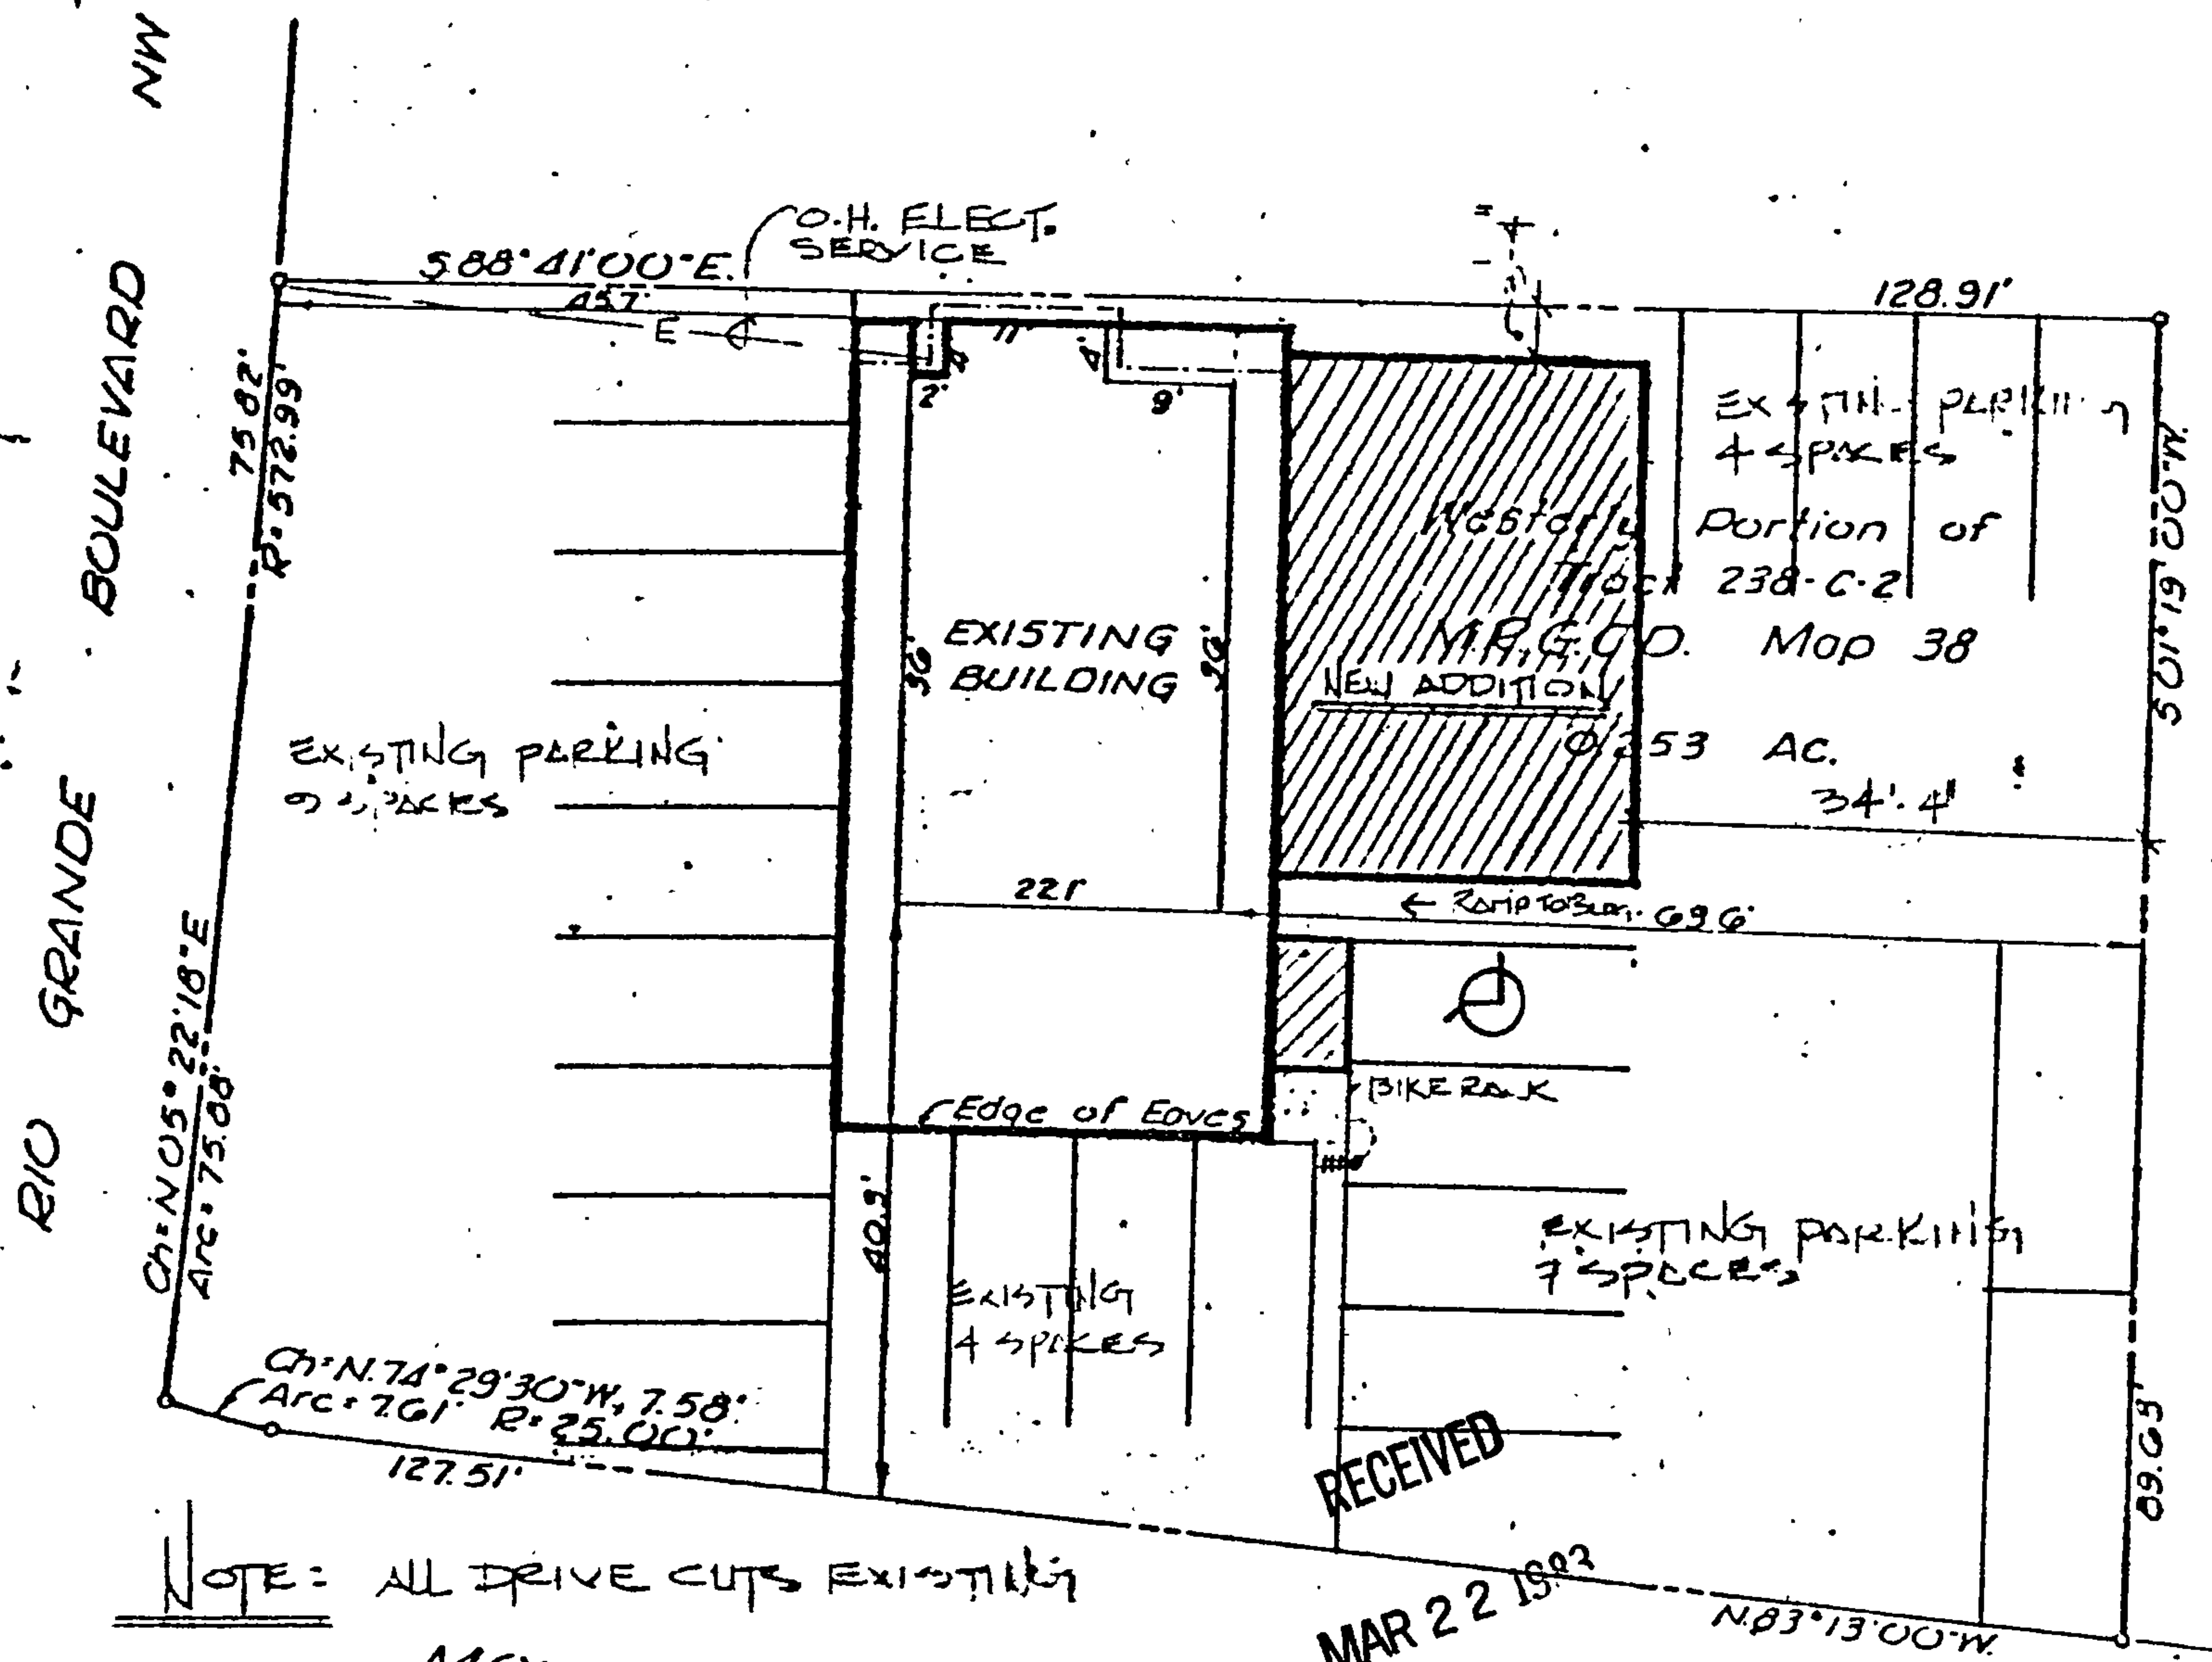 NW
BOULEVARD
GRANDE
RIO
O.H. ELECT.
SERVICE
S 88° 41' 00" E.
45.7'
E
128.91'
75.82'
R= 572.99'
2'
11'
4'
4'
9'
EXISTING PARKING
4 SPACES
Westerly Portion of
Tract 238-C-2
M.R.G.C.D. Map 38
NEW ADDITION
0.253 Ac.
34'-4"
S 01° 19' 00" W.
EXISTING
BUILDING
36'
36'
EXISTING PARKING
9 SPACES
22.1'
← RAMP TO BLDG.
69.6'
Ch= N 05° 22' 18" E
Arc= 75.88'
BIKE RACK
Edge of Eaves
40.9'
EXISTING
4 SPACES
EXISTING PARKING
7 SPACES
Ch= N. 74° 29' 30" W, 7.58'
Arc= 7.61' R= 25.00'
127.51'
89.63'
RECEIVED
MAR 22
N. 83° 13' 00" W.
NOTE= ALL DRIVE CUTS EXISTING